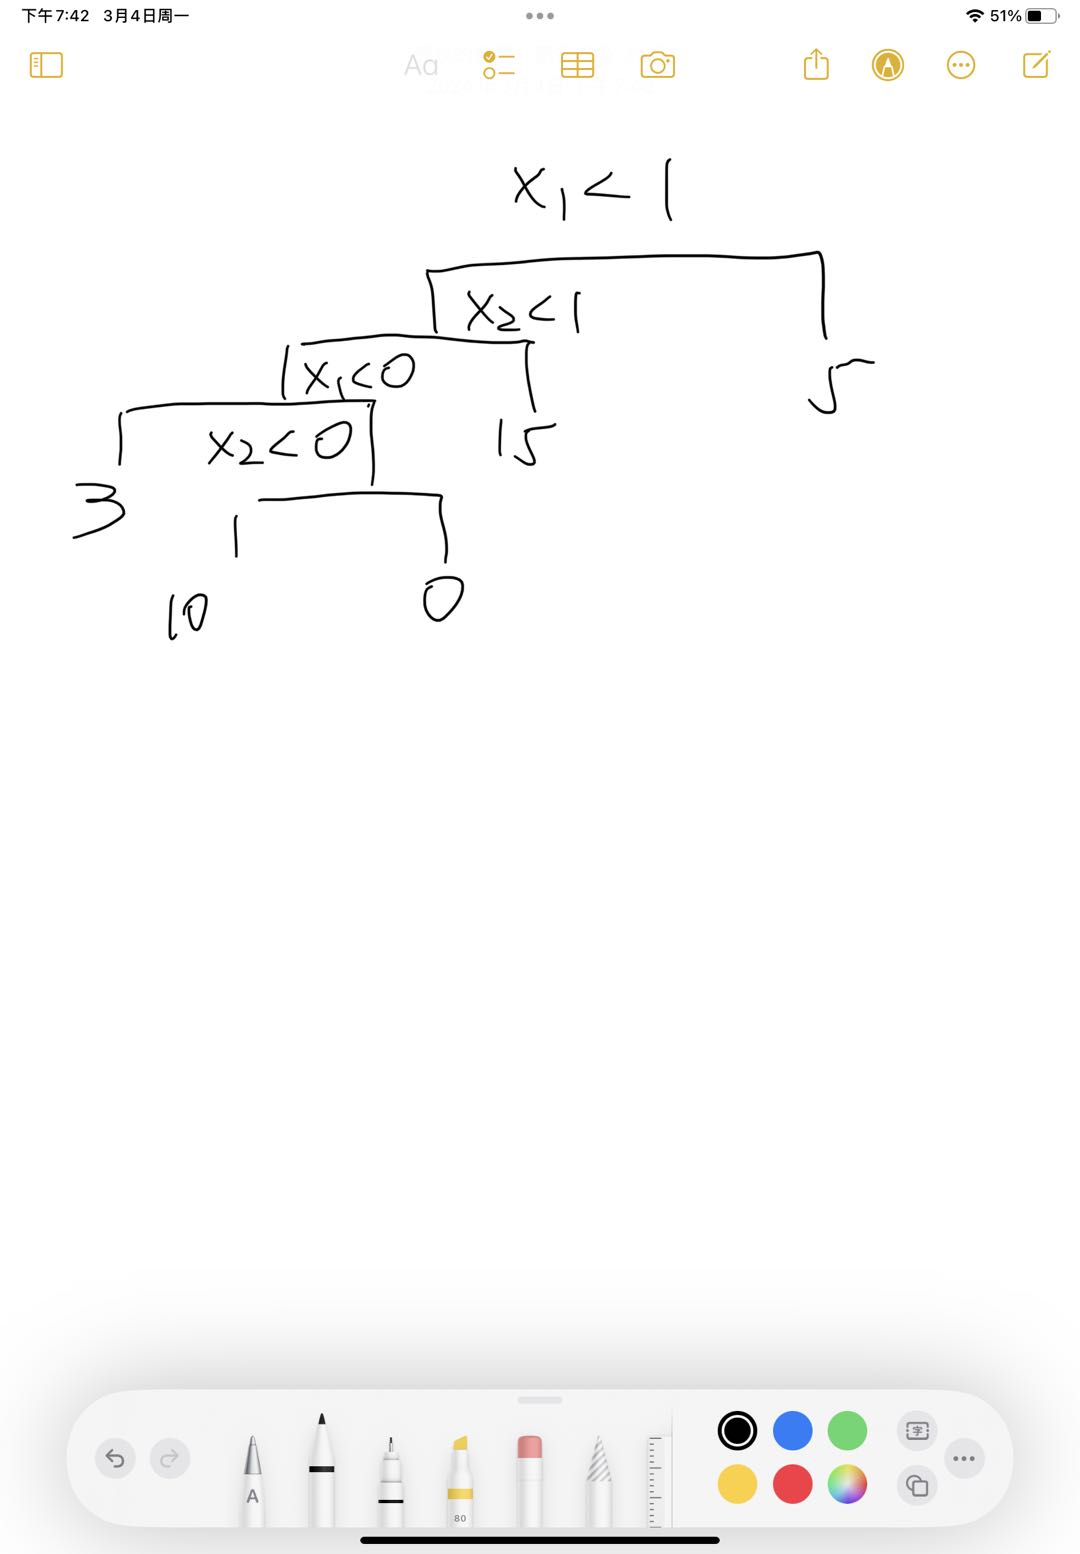 下午7:42 3月4日周一
51%
Aa
X₁ < 1
X₂ < 1
X₁ < 0
5
X₂ < 0
15
3
10
0
字
A
80